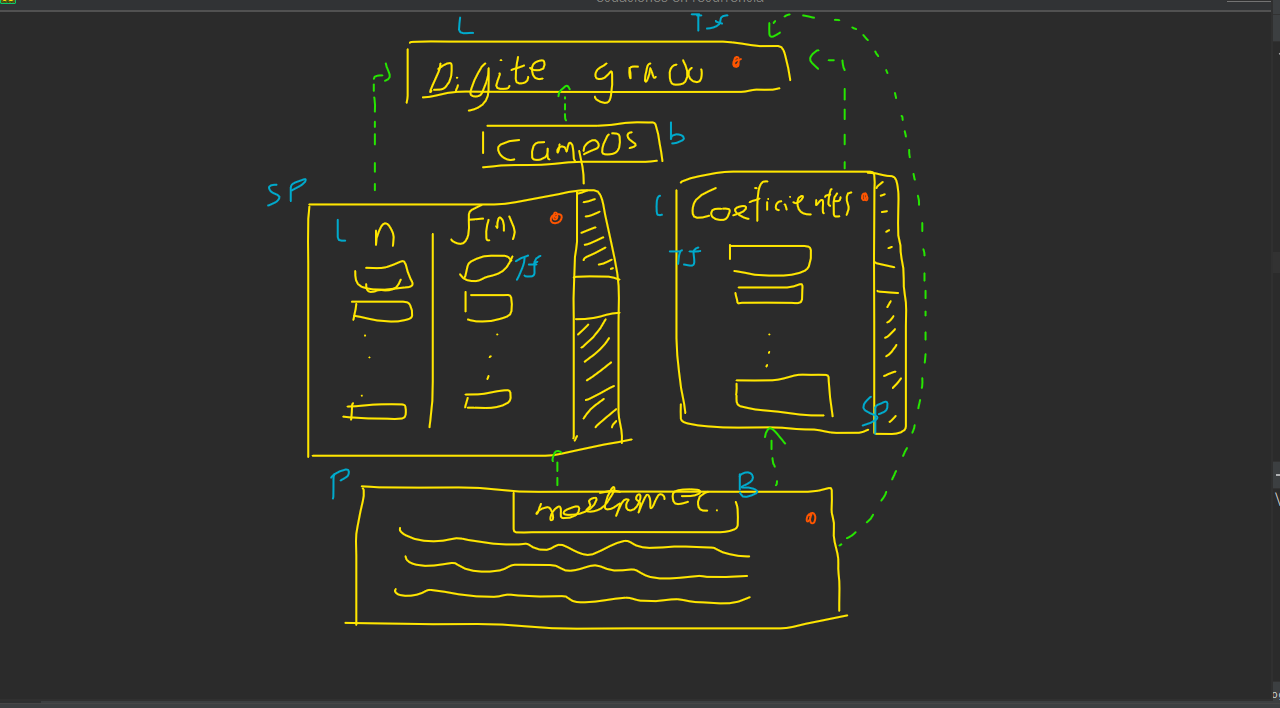 ecuaciones en recurrencia
L Tf
Digite grado
Campos b
SP
L n f(n)
Tf
C Coeficientes
Tf
SP
P B
mostrar Ec.